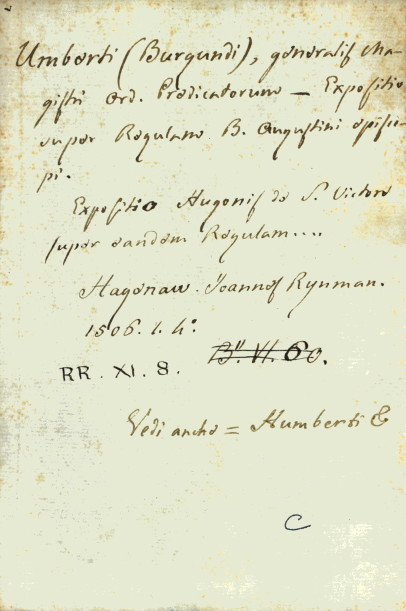 Umberti (Burgundi), generalis Ma-
gistri Ord. Predicatorum — Expositio
super Regulam B. Augustini episco-
pi.
Expositio Hugonis de S. Victore
super eandem Regulam....
Hagenaw. Joannes Rynman.
1506. 1. 4º.
B". VI. 60.
RR. XI. 8.
Vedi anche = Humberti &
C